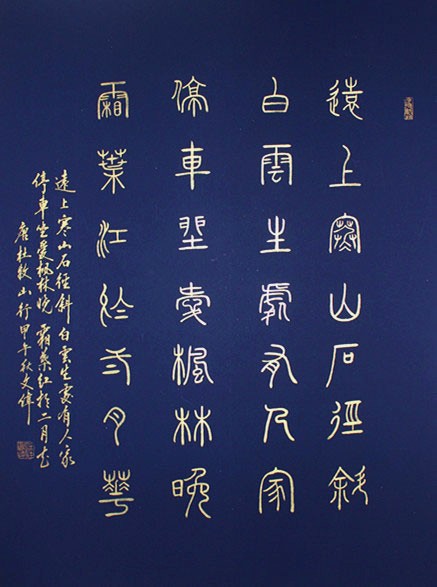 遠上寒山石徑斜
白雲生處有人家
停車坐愛楓林晚
霜葉紅於二月華
遠上寒山石徑斜 白雲生處有人家
停車坐愛楓林晚 霜葉紅於二月花
唐杜牧山行甲午秋文偉